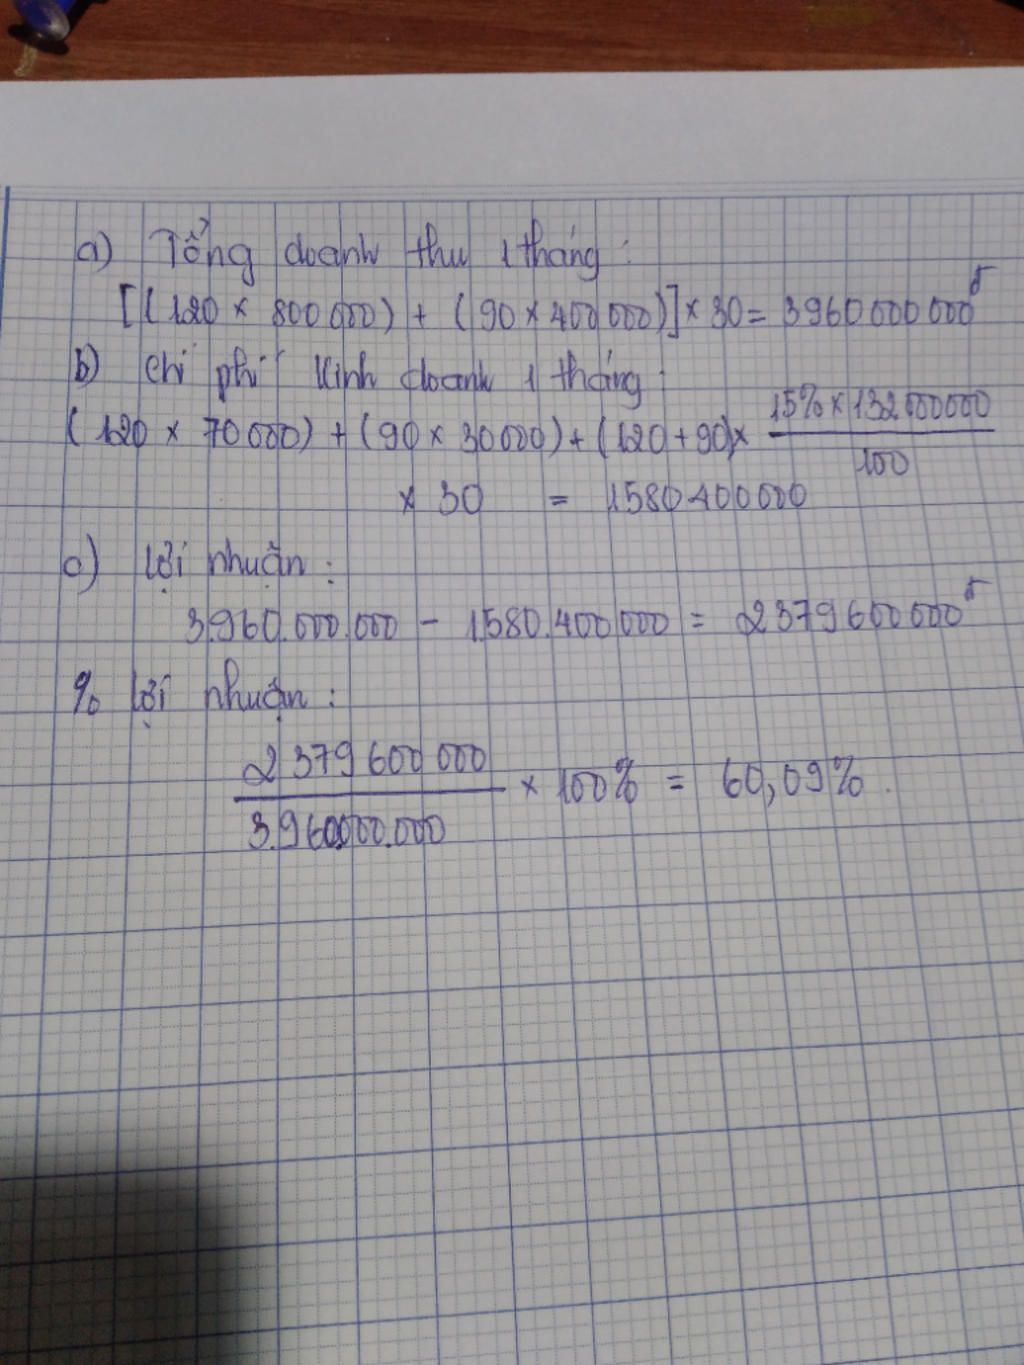 a) Tổng doanh thu 1 tháng:
[(120 × 800 000) + (90 × 400 000)] × 30 = 3960 000 000đ
b) Chi phí kinh doanh 1 tháng:
(120 × 70 000) + (90 × 30 000) + (120 + 90) × 15% × 132 000 000 / 100
× 30 = 1580 400 000
c) Lợi nhuận:
3.960.000.000 - 1.580.400 000 = 2379 600 000đ
% lợi nhuận:
2 379 600 000 / 3.960.000.000 × 100% = 60,09%.